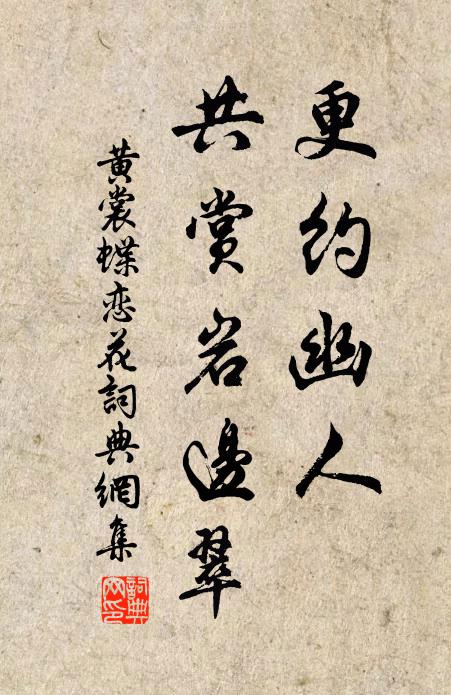 更约幽人
共赏岩邊翠
黄裳蝶恋花詞典網集
詞典